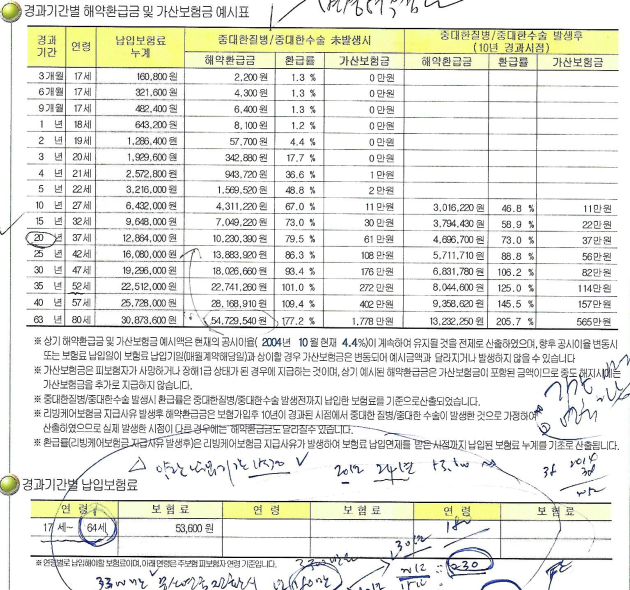 경과기간별 해약환급금 및 가산보험금 예시표
경과기간 연령 납입보험료 누계 중대한질병/중대한수술 미발생시 중대한질병/중대한수술 발생후 (10년 경과시점)
해약환급금 환급률 가산보험금 해약환급금 환급률 가산보험금
3개월 17세 160,800원 2,200원 1.3 % 0만원
6개월 17세 321,600원 4,300원 1.3 % 0만원
9개월 17세 482,400원 6,400원 1.3 % 0만원
1 년 18세 643,200원 8,100원 1.2 % 0만원
2 년 19세 1,286,400원 57,700원 4.4 % 0만원
3 년 20세 1,929,600원 342,880원 17.7 % 0만원
4 년 21세 2,572,800원 943,720원 36.6 % 1만원
5 년 22세 3,216,000원 1,569,520원 48.8 % 2만원
10 년 27세 6,432,000원 4,311,220원 67.0 % 11만원 3,016,220원 46.8 % 11만원
15 년 32세 9,648,000원 7,049,220원 73.0 % 30만원 3,794,430원 58.9 % 22만원
20 년 37세 12,864,000원 10,230,390원 79.5 % 61만원 4,696,700원 73.0 % 37만원
25 년 42세 16,080,000원 13,883,920원 86.3 % 108만원 5,711,710원 88.8 % 56만원
30 년 47세 19,296,000원 18,026,660원 93.4 % 176만원 6,831,780원 106.2 % 82만원
35 년 52세 22,512,000원 22,741,260원 101.0 % 272만원 8,044,600원 125.0 % 114만원
40 년 57세 25,728,000원 28,168,910원 109.4 % 402만원 9,358,620원 145.5 % 157만원
63 년 80세 30,873,600원 54,729,540원 177.2 % 1,778만원 13,232,250원 205.7 % 565만원
※ 상기 해약환급금 및 가산보험금 예시액은 현재의 공시이율( 2004년 10 월 현재 4.4%)이 계속하여 유지될 것을 전제로 산출하였으며, 향후 공시이율 변동시
또는 보험료 납입일이 보험료 납입기일(매월계약해당일)과 상이할 경우 가산보험금은 변동되어 예시금액과 달라지거나 발생하지 않을 수 있습니다
※ 가산보험금은 피보험자가 사망하거나 장해1급 상태가 된 경우에 지급하는 것이며, 상기 예시된 해약환급금은 가산보험금이 포함된 금액이므로 중도 해지시에는
가산보험금을 추가로 지급하지 않습니다.
※ 중대한질병/중대한수술 발생시 환급률은 중대한질병/중대한수술 발생전까지 납입한 보험료를 기준으로 산출되었습니다.
※ 리빙케어보험금 지급사유 발생후 해약환급금은 보험가입후 10년이 경과된 시점에서 중대한 질병/중대한 수술이 발생한 것으로 가정하여
산출하였으므로 실제 발생한 시점이 다른 경우에는 해약환급금도 달라질수 있습니다.
※ 환급률(리빙케어보험금 지급사유 발생후)은 리빙케어보험금 지급사유가 발생하여 보험료 납입면제를 받은 시점까지 납입된 보험료 누계를 기초로 산출됩니다.
경과기간별 납입보험료
연 령 보 험 료 연 령 보 험 료 연 령 보 험 료
17 세~ 64세 53,600 원
※ 연령별로 납입해야할 보험료이며, 아래 연령은 주보험 피보험자 연령 기준입니다.